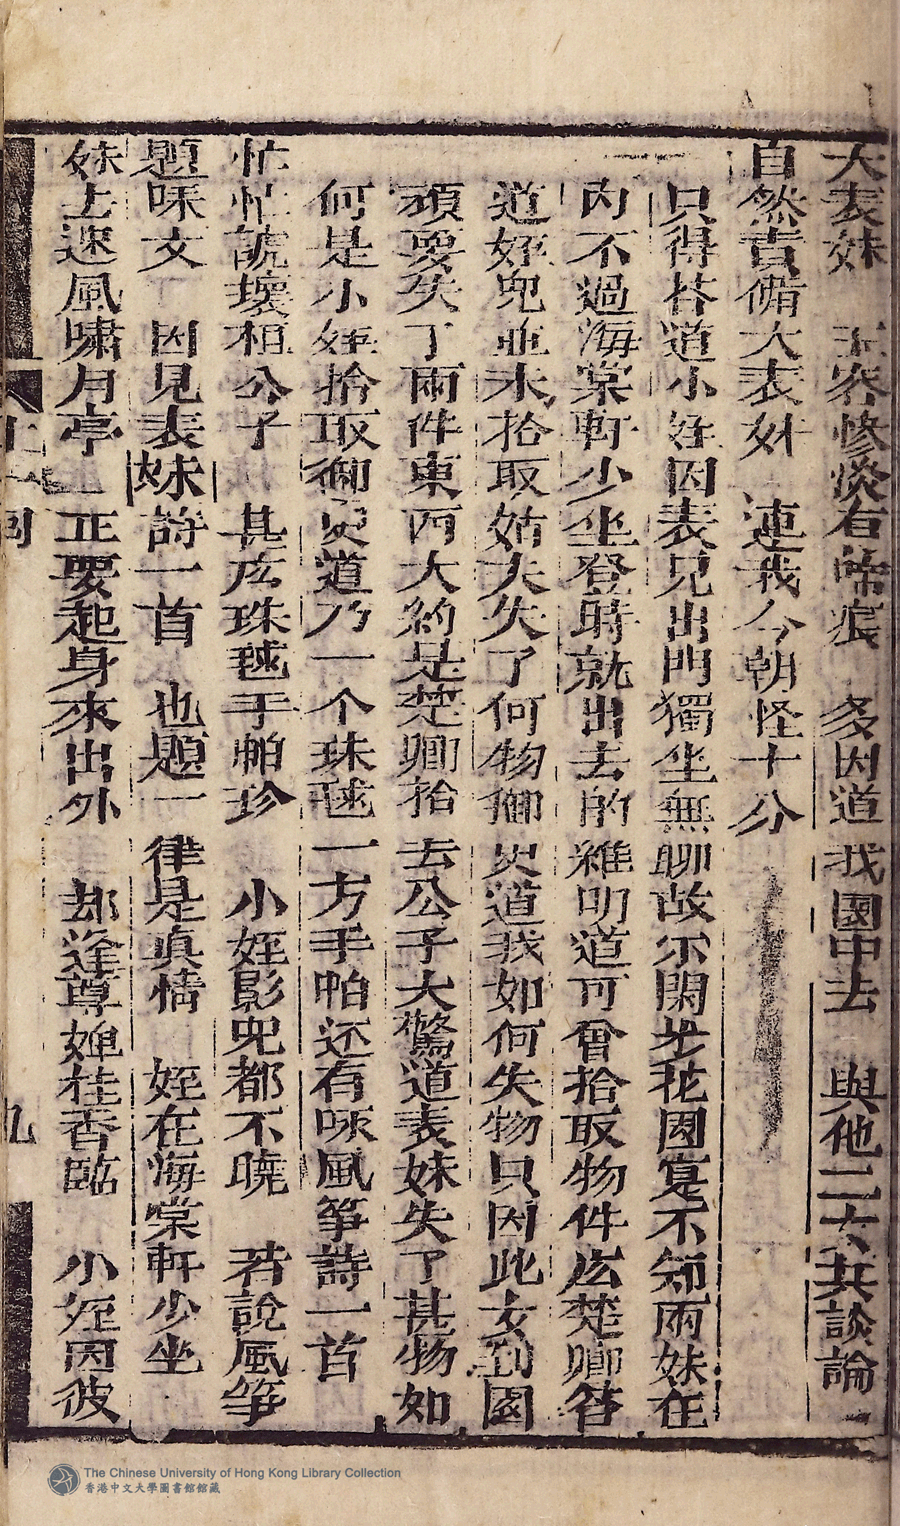 大表妹　玉容慘淡有啼痕　多因道我園中去　與他二六共談論
自然責備大表妹　連我今朝怪十分
只得答道小姪因表兄出門獨坐無聊故尔閑步花園寔不知兩妹在
内不過海棠軒少坐登時就出去的雜明道可曾拾取物件庅楚卿答
道姪兒並未拾取姑夫失了何物御史道我如何失物只因此女到園
頑耍失了兩件東西大約是楚卿拾去公子大驚道表妹失了甚物如
何是小姪拾取御史道乃一个珠毬一方手帕还有咏風箏詩一首
忙忙諕壞桓公子　甚庅珠毬于帕珍　小姪影兒都不曉　若說風箏
題咏文　因見表妹詩一首　也題一律是真情　姪在海棠軒少坐
妹去迷風嘯月亭　正要起身來出外　却逢尊嬋桂香臨　小姪因彼
上　囘
九
The Chinese University of Hong Kong Library Collection
香港中文大學圖書館館藏